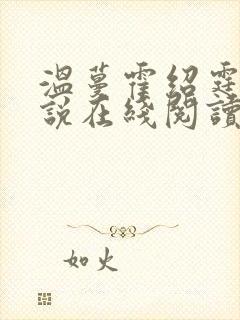 温蔓霍绍霆
说在线阅读
如火